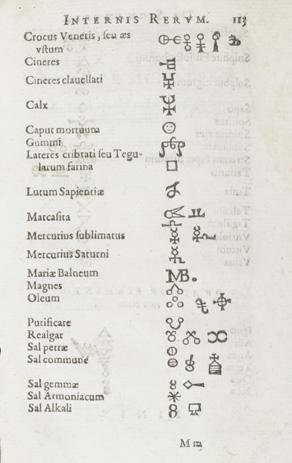 INTERNIS RERVM. 113
Crocus Veneris, seu æs
vstum
Cineres
Cineres clauellati
Calx
Caput mortuum
Gummi
Lateres cribrati seu Tegu-
larum farina
Lutum Sapientiæ
Marcasita
Mercurius sublimatus
Mercurius Saturni
Mariæ Balneum MB.
Magnes
Oleum
Purificare
Realgar
Sal petræ
Sal commune
Sal gemmæ
Sal Armoniacum
Sal Alkali
M m